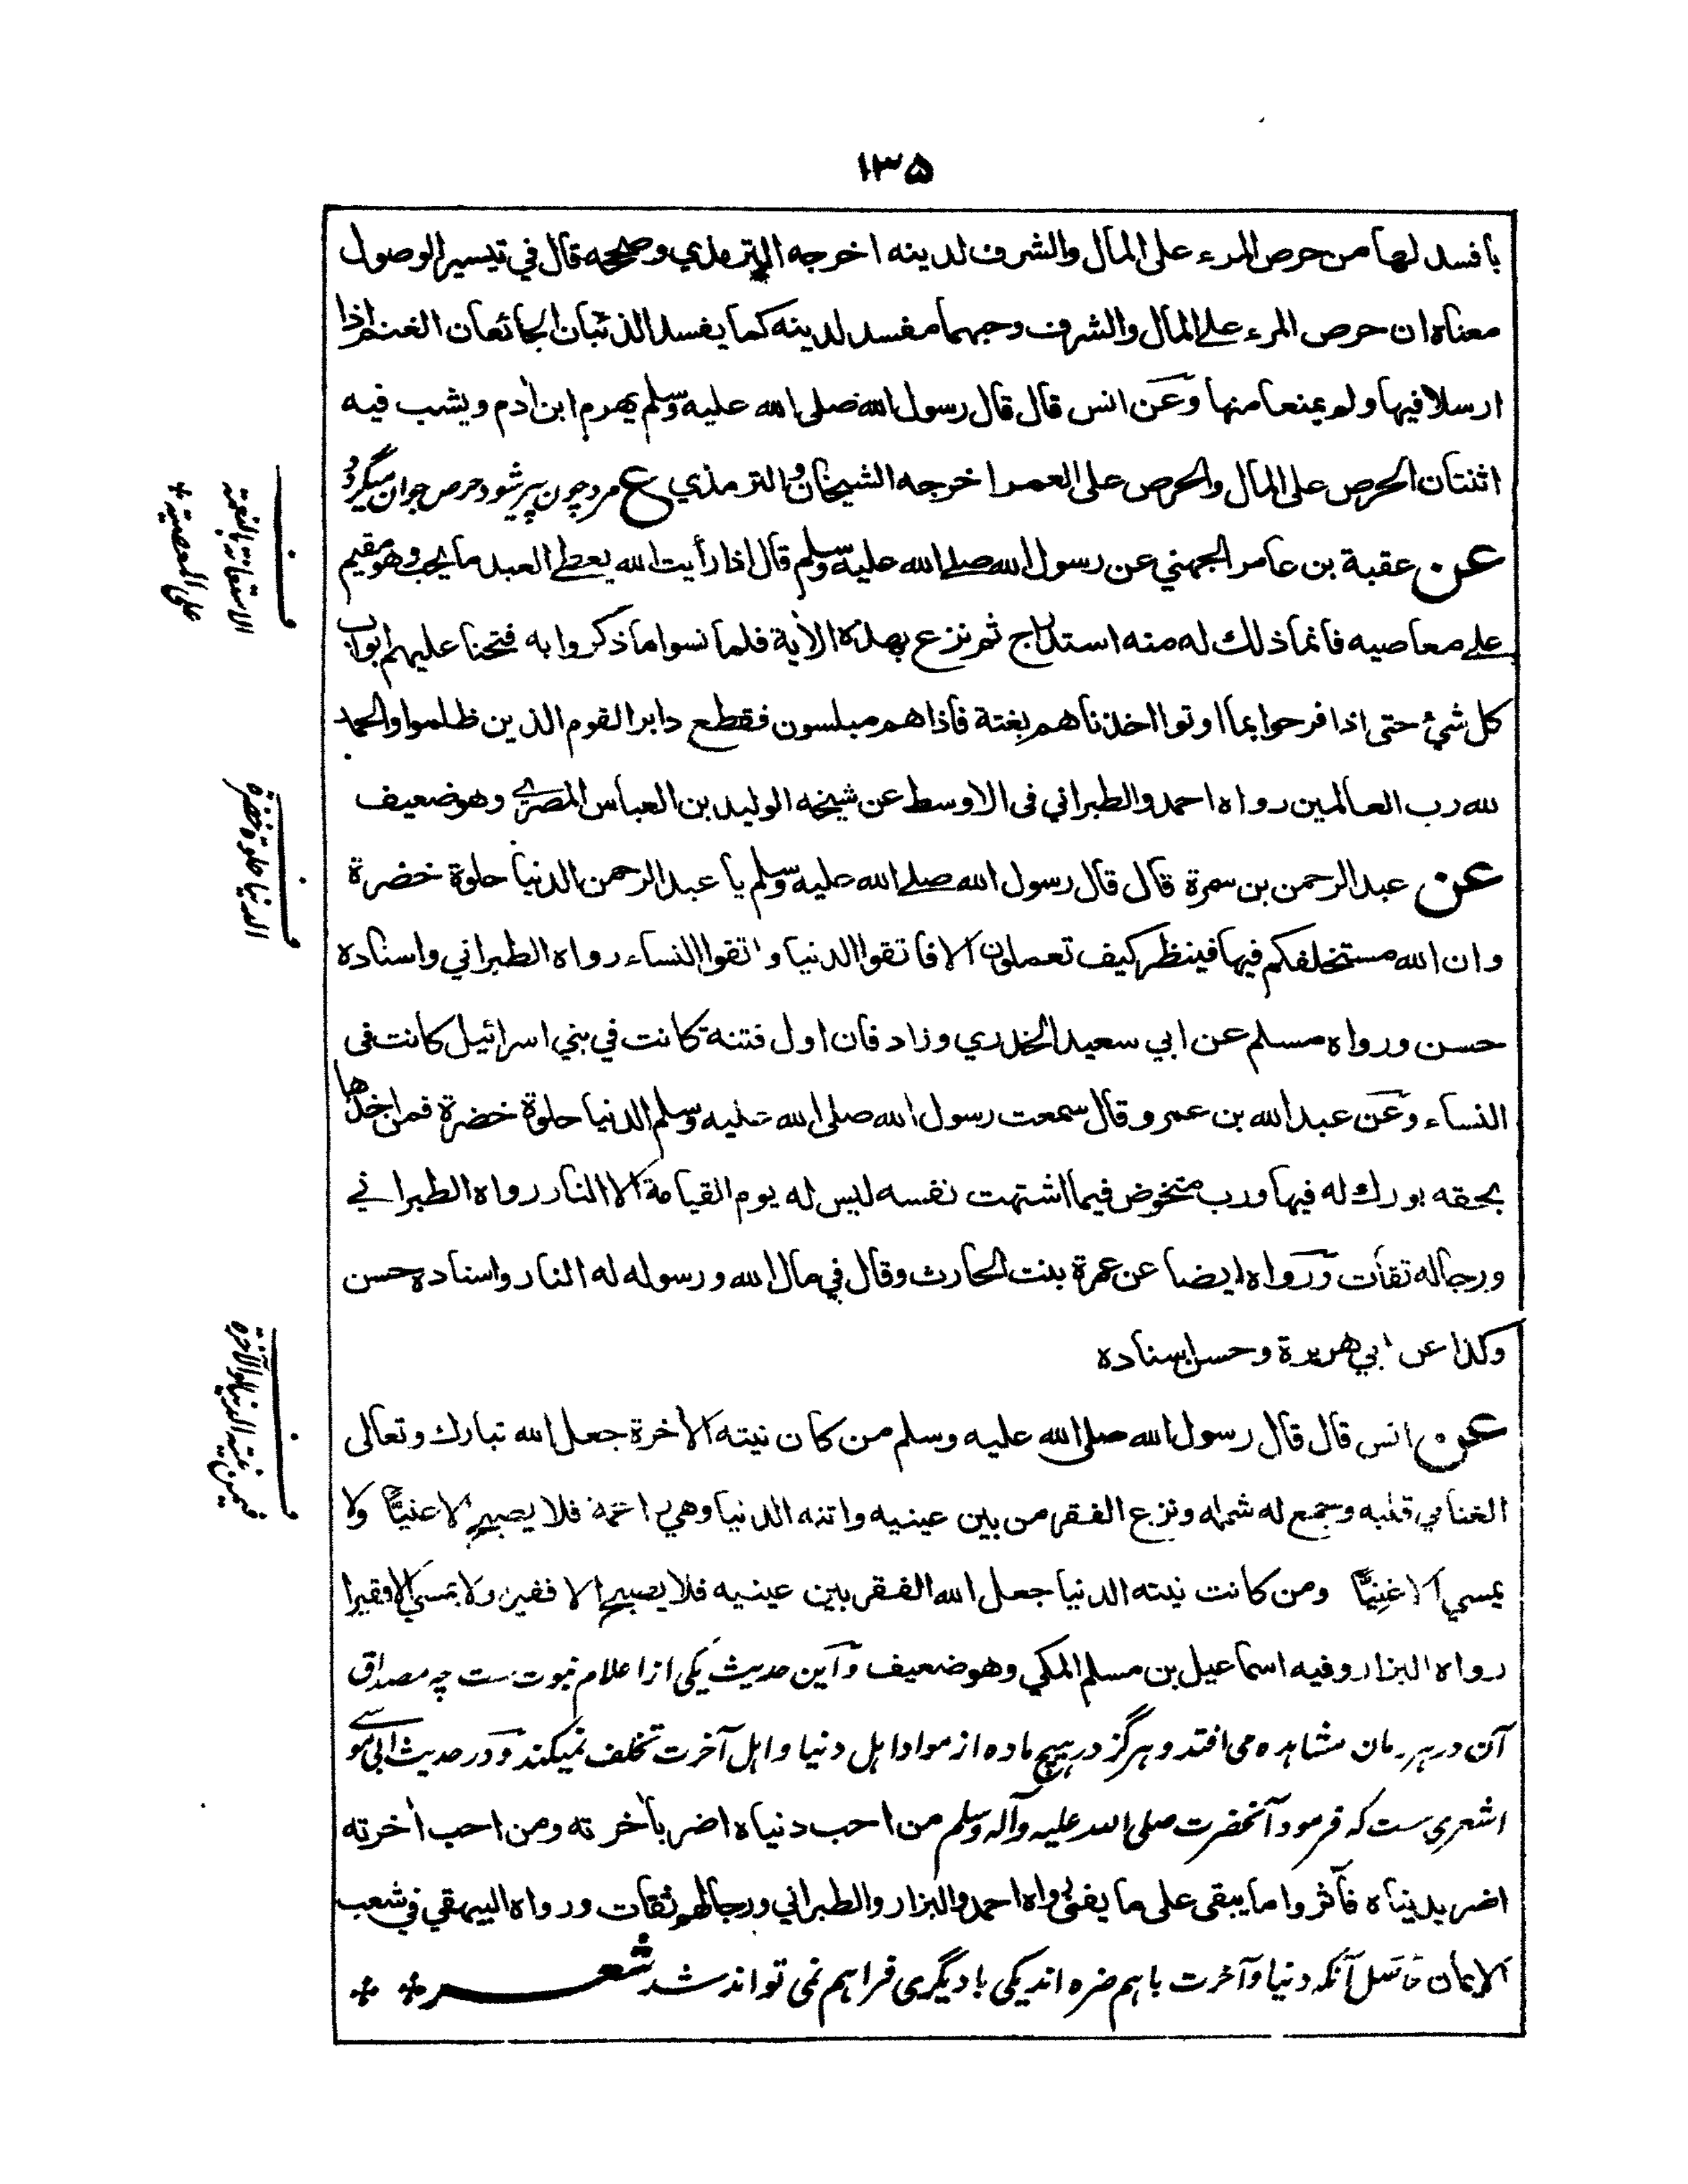 ۱۳۵
بافسد لها من حرص المرء على المال والشرف لدينه اخرجه الترمذي وصححه قال في تيسير الوصول
معناه ان حرص المرء على المال والشرف وحبهما مفسد لدينه كما يفسد الذئبان الجائعان الغنم اذا
ارسلا فيها ولم يمنعا منها وعن انس قال قال رسول الله صلى الله عليه وسلم يهرم ابن ادم ويشب فيه
اثنتان الحرص على المال والحرص على العمر اخرجه الشيخان والترمذي ع مرد چون پیر شود حرص جوان میگردد
عن عقبة بن عامر الجهني عن رسول الله صلے الله عليه وسلم قال اذا رأيت الله يعطے العبد ما يحب وهو مقيم
علے معاصيه فانما ذلك له منه استدراج ثم نزع بهذه الاٰية فلما نسوا ما ذكروا به فتحنا عليهم ابواب
كل شيء حتى اذا فرحوا بما اوتوا اخذناهم بغتة فاذاهم مبلسون فقطع دابر القوم الذين ظلموا والحمد
لله رب العالمين رواه احمد والطبراني فى الاوسط عن شيخه الوليد بن العباس المصرے وهو ضعيف
عن عبد الرحمن بن سمرة قال قال رسول الله صلے الله عليه وسلم يا عبد الرحمن الدنيا حلوة خضرة
وان الله مستخلفكم فيها فينظر كيف تعملون الا فاتقوا الدنيا واتقوا النساء رواه الطبراني واسناده
حسن ورواه مسلم عن ابي سعيد الخدري وزاد فان اول فتنة كانت في بني اسرائيل كانت فى
النساء وعن عبد الله بن عمرو قال سمعت رسول الله صلى الله عليه وسلم الدنيا حلوة خضرة فمن اخذها
بحقه بورك له فيها ورب متخوض فيما اشتهت نفسه ليس له يوم القيامة الا النار رواه الطبراني
ورجاله ثقات ورواه ايضا عن عمرة بنت الحارث وقال في مال الله ورسوله له النار واسناده حسن
وكذا عن ابي هريرة وحسن اسناده
عن انس قال قال رسول الله صلى الله عليه وسلم من كان نيته الاٰخرة جعل الله تبارك وتعالى
الغنا في قلبه وجمع له شمله ونزع الفقر من بين عينيه واتته الدنيا وهي راغمة فلا يصبح الا غنيًّا ولا
يمسي الا غنيًّا ومن كانت نيته الدنيا جعل الله الفقر بين عينيه فلا يصبح الا فقيرا ولا يمسي الا فقيرا
رواه البزار وفيه اسماعيل بن مسلم المكي وهو ضعيف واین حدیث یکی از اعلام نبوت ست چه مصداق
آن در هر زمان مشاهده می افتد و هرگز در هیچ ماده از مواد اهل دنیا و اهل آخرت تخلف نمیکند و در حدیث ابی موسے
اشعری ست که فرمود آنحضرت صلی الله علیه وآله وسلم من احب دنياه اضر باٰخرته ومن احب اٰخرته
اضر بدنياه فآثروا ما يبقى على ما يفنى رواه احمد والبزار والطبراني ورجالهم ثقات ورواه البيهقي في شعب
الايمان حاصل آنکه دنیا و آخرت باهم ضره اند یکی با دیگری فراهم نمی تواند شد شعر
ف الاستعانة بالنعمة
على المعصية
ف الدنيا حلوة خضرة
ف فيمن نيته الدنيا والآخرة